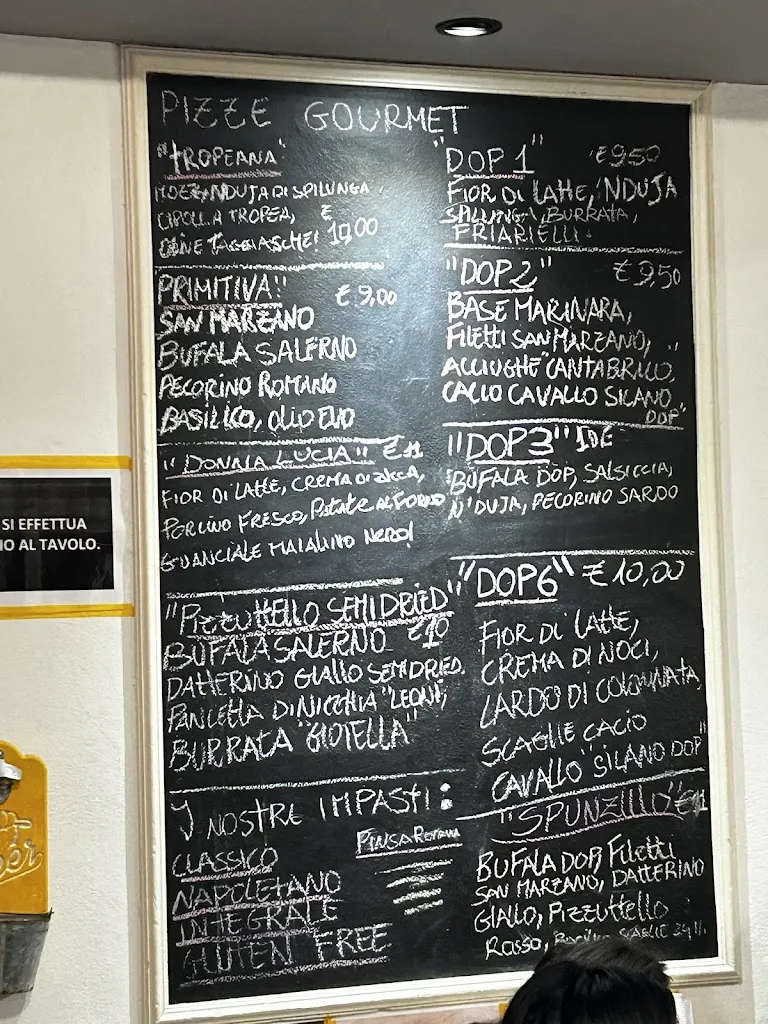 PIZZE GOURMET
"TROPEANA"
NDUJA DI SPILINGA
CIPOLLA TROPEA, €
OLIVE TAGGIASCHE! 10,00
PRIMITIVA"
€ 9,00
SAN MARZANO
BUFALA SALERNO
PECORINO ROMANO
BASILICO, OLIO EVO
"DONNA LUCIA" € 11
FIOR DI LATTE, CREMA DI ZUCCA,
PORCINO FRESCO, PATATE AL FORNO
GUANCIALE MAIALINO NERO!
"PIZZUTTELLO SEMIDRIED"
BUFALA SALERNO €10
DATTERINO GIALLO SEMIDRIED,
PANCETTA DI NICCHIA "LEONI",
BURRATA "GIOIELLA"
I NOSTRI IMPASTI:
CLASSICO
PINSA ROMANA
NAPOLETANO
INTEGRALE
GLUTEN FREE
"DOP 1" €9,50
FIOR DI LATTE, 'NDUJA
SPILINGA, BURRATA,
FRIARIELLI
"DOP2" € 9,50
BASE MARINARA,
FILETTI SAN MARZANO,
ACCIUGHE "CANTABRICO",
CACIO CAVALLO SILANO
DOP"
"DOP3"
BUFALA DOP, SALSICCIA,
N'DUJA, PECORINO SARDO
"DOP6" € 10,00
FIOR DI LATTE,
CREMA DI NOCI,
LARDO DI COLONNATA,
SCAGLIE CACIO
CAVALLO "SILANO DOP"
"SPUNZILLO" €11
BUFALA DOP, FILETTI
SAN MARZANO, DATTERINO
GIALLO, PIZZUTTELLO
ROSSO,
SI EFFETTUA
IO AL TAVOLO.